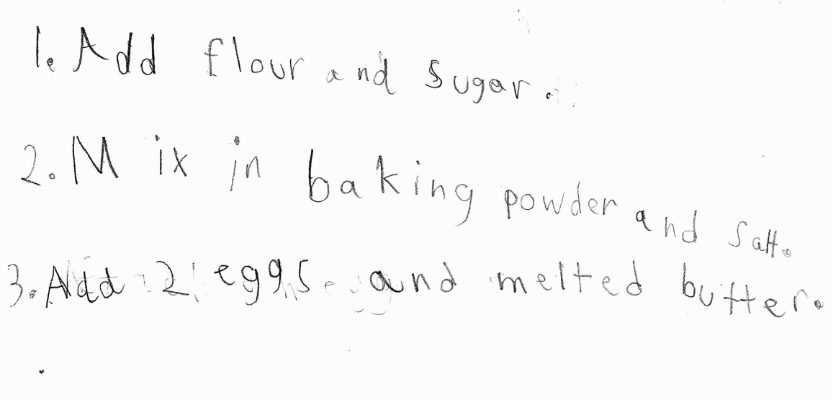 1. Add flour and sugar.
2. Mix in baking powder and salt.
3. Add 2 eggs and melted butter.